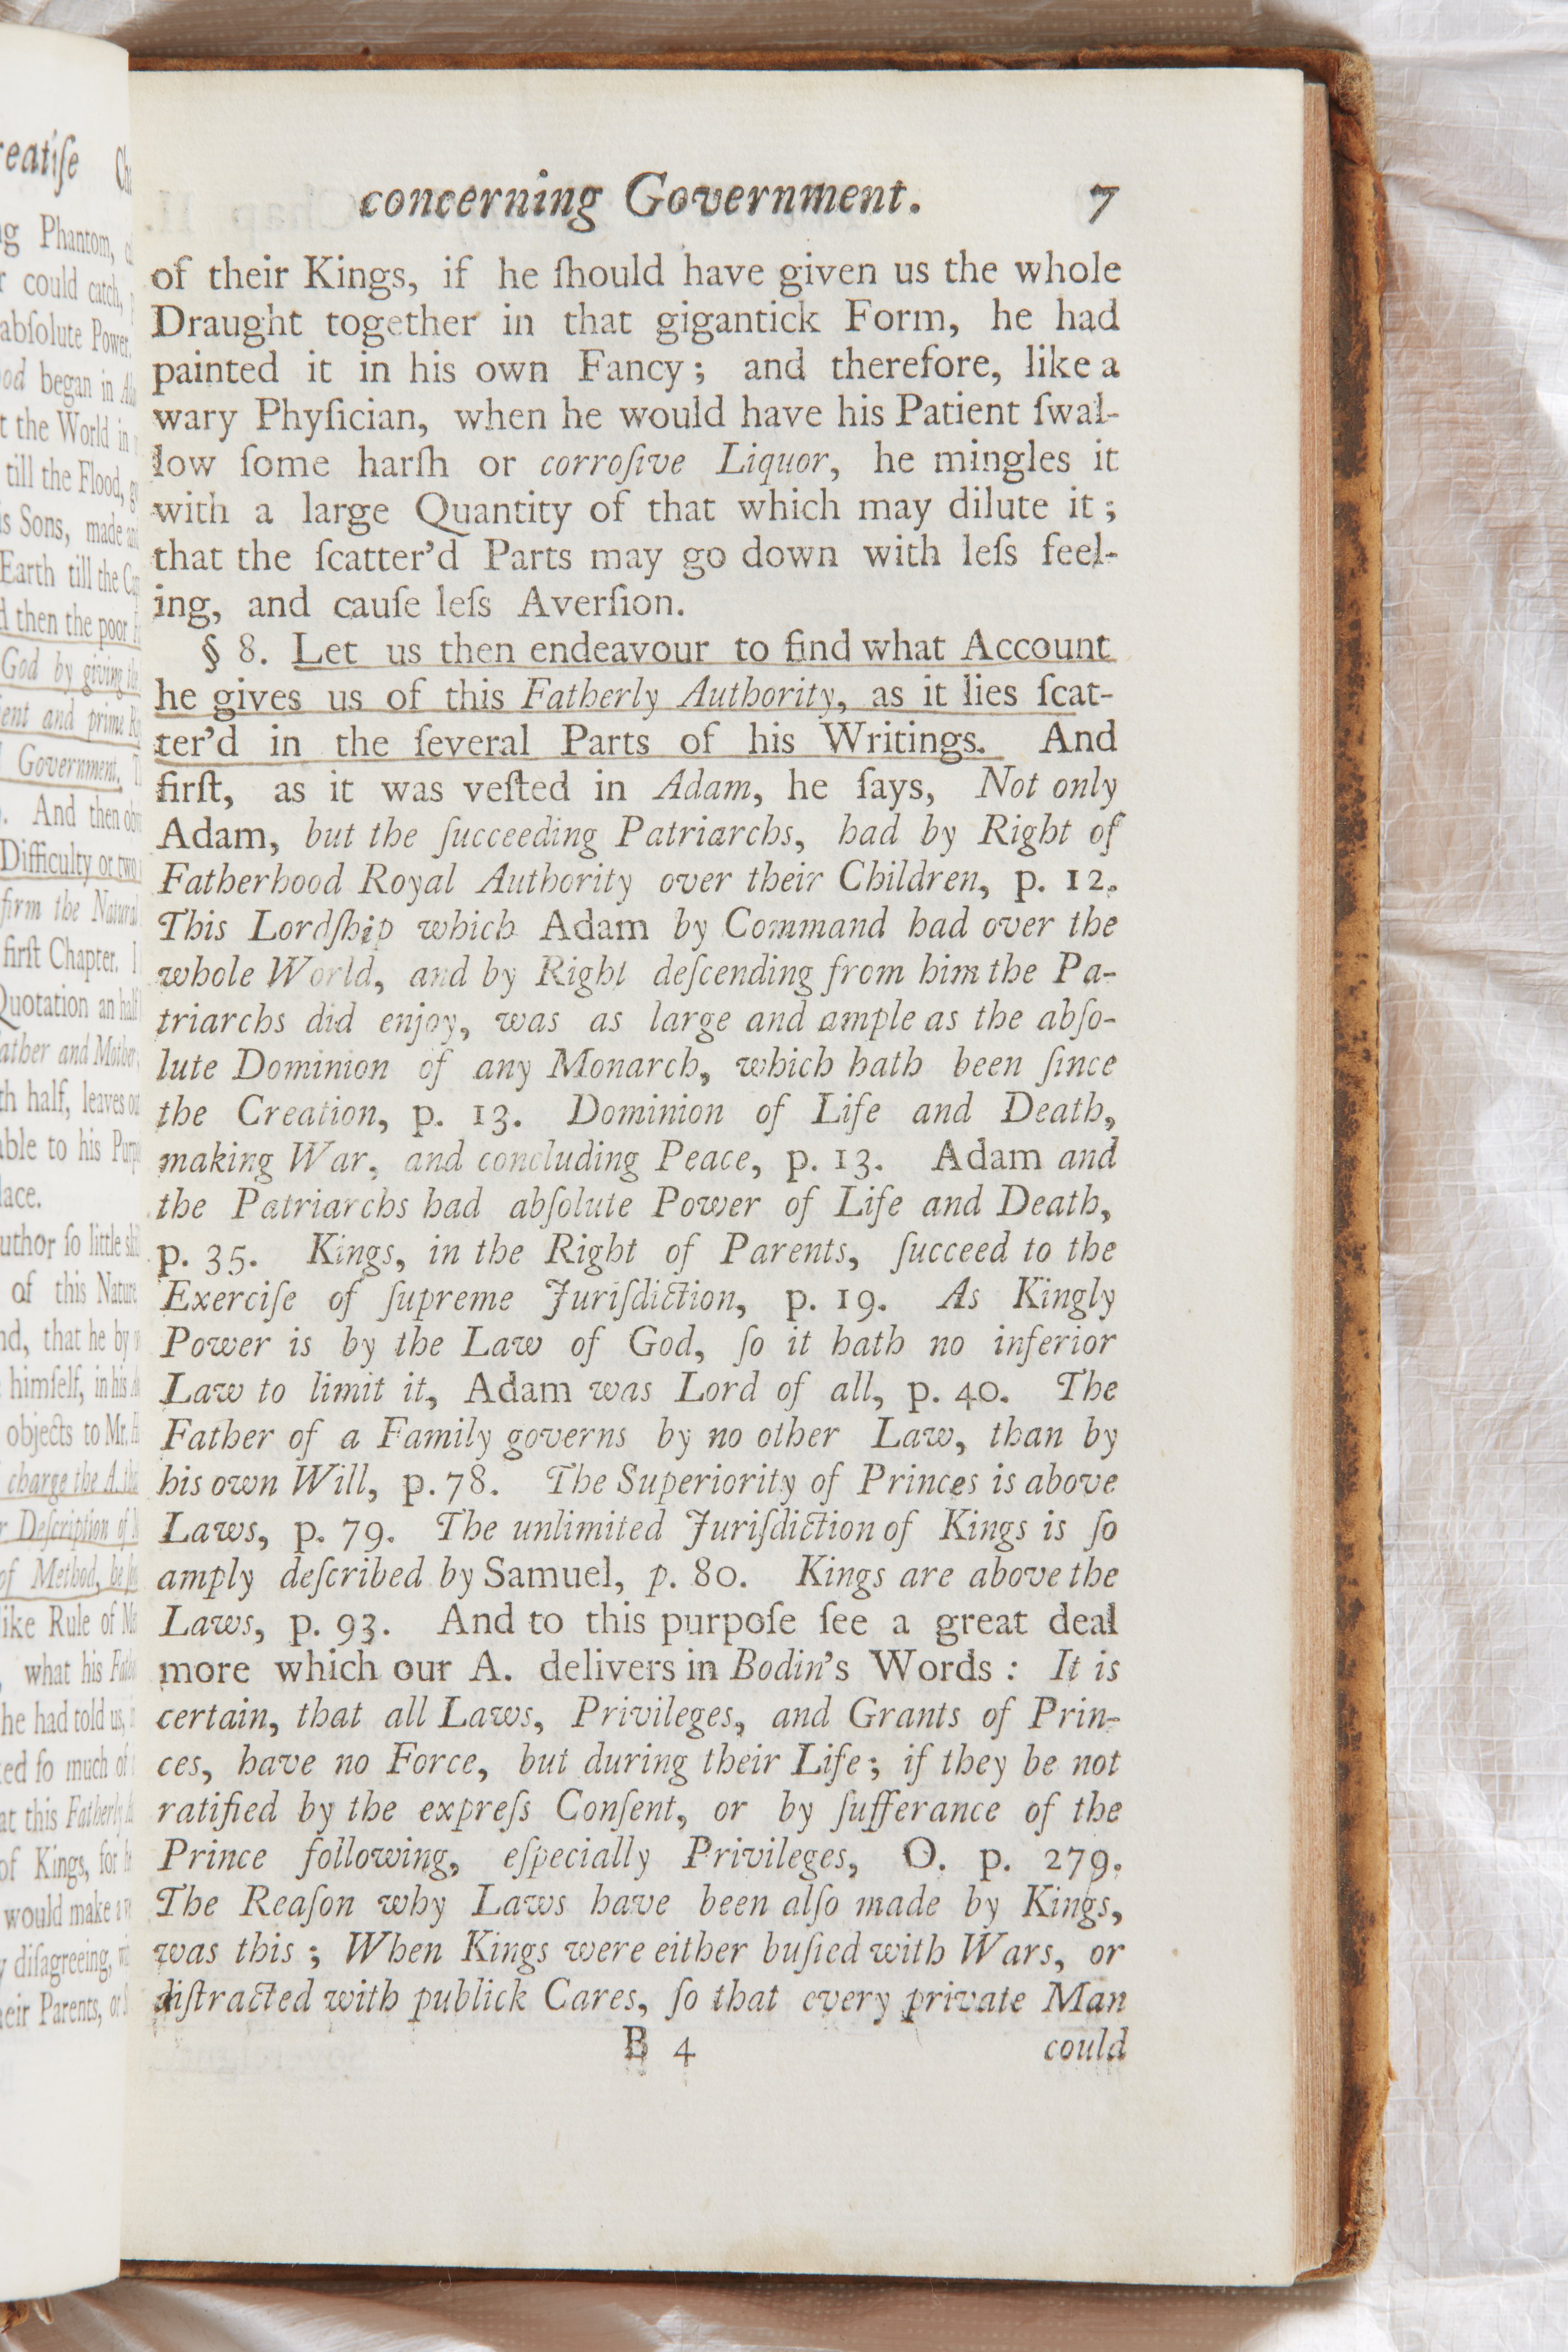 reatiſe
g Phantom,
r could catch,
abſolute Power,
od began in
t the World in
till the Flood,
s Sons, made
Earth till the
d then the poor
God by giving
ent and prime
Government.
. And then
Difficulty or two
firm the Natural
firſt Chapter.
Quotation an half
ather and Mother
th half, leaves out
able to his
lace.
uthor ſo little
of this Nature
nd, that he by
himſelf, in his
objects to Mr.
charge the A.
r Deſcription of
of Method, he
like Rule of
what his
he had told us,
ed ſo much of
at this Fatherly
of Kings, for
would make
y diſagreeing,
heir Parents, or
concerning Government. 7
of their Kings, if he ſhould have given us the whole
Draught together in that gigantick Form, he had
painted it in his own Fancy; and therefore, like a
wary Phyſician, when he would have his Patient ſwal-
low ſome harſh or corroſive Liquor, he mingles it
with a large Quantity of that which may dilute it;
that the ſcatter'd Parts may go down with leſs feel-
ing, and cauſe leſs Averſion.
§ 8. Let us then endeavour to find what Account
he gives us of this Fatherly Authority, as it lies ſcat-
ter'd in the ſeveral Parts of his Writings. And
firſt, as it was veſted in Adam, he ſays, Not only
Adam, but the ſucceeding Patriarchs, had by Right of
Fatherhood Royal Authority over their Children, p. 12.
This Lordſhip which Adam by Command had over the
whole World, and by Right deſcending from him the Pa-
triarchs did enjoy, was as large and ample as the abſo-
lute Dominion of any Monarch, which hath been ſince
the Creation, p. 13. Dominion of Life and Death,
making War, and concluding Peace, p. 13. Adam and
the Patriarchs had abſolute Power of Life and Death,
p. 35. Kings, in the Right of Parents, ſucceed to the
Exerciſe of ſupreme Juriſdiction, p. 19. As Kingly
Power is by the Law of God, ſo it hath no inferior
Law to limit it, Adam was Lord of all, p. 40. The
Father of a Family governs by no other Law, than by
his own Will, p. 78. The Superiority of Princes is above
Laws, p. 79. The unlimited Juriſdiction of Kings is ſo
amply deſcribed by Samuel, p. 80. Kings are above the
Laws, p. 93. And to this purpoſe ſee a great deal
more which our A. delivers in Bodin's Words: It is
certain, that all Laws, Privileges, and Grants of Prin-
ces, have no Force, but during their Life; if they be not
ratified by the expreſs Conſent, or by ſufferance of the
Prince following, eſpecially Privileges, O. p. 279.
The Reaſon why Laws have been alſo made by Kings,
was this; When Kings were either buſied with Wars, or
diſtracted with publick Cares, ſo that every private Man
B 4 could